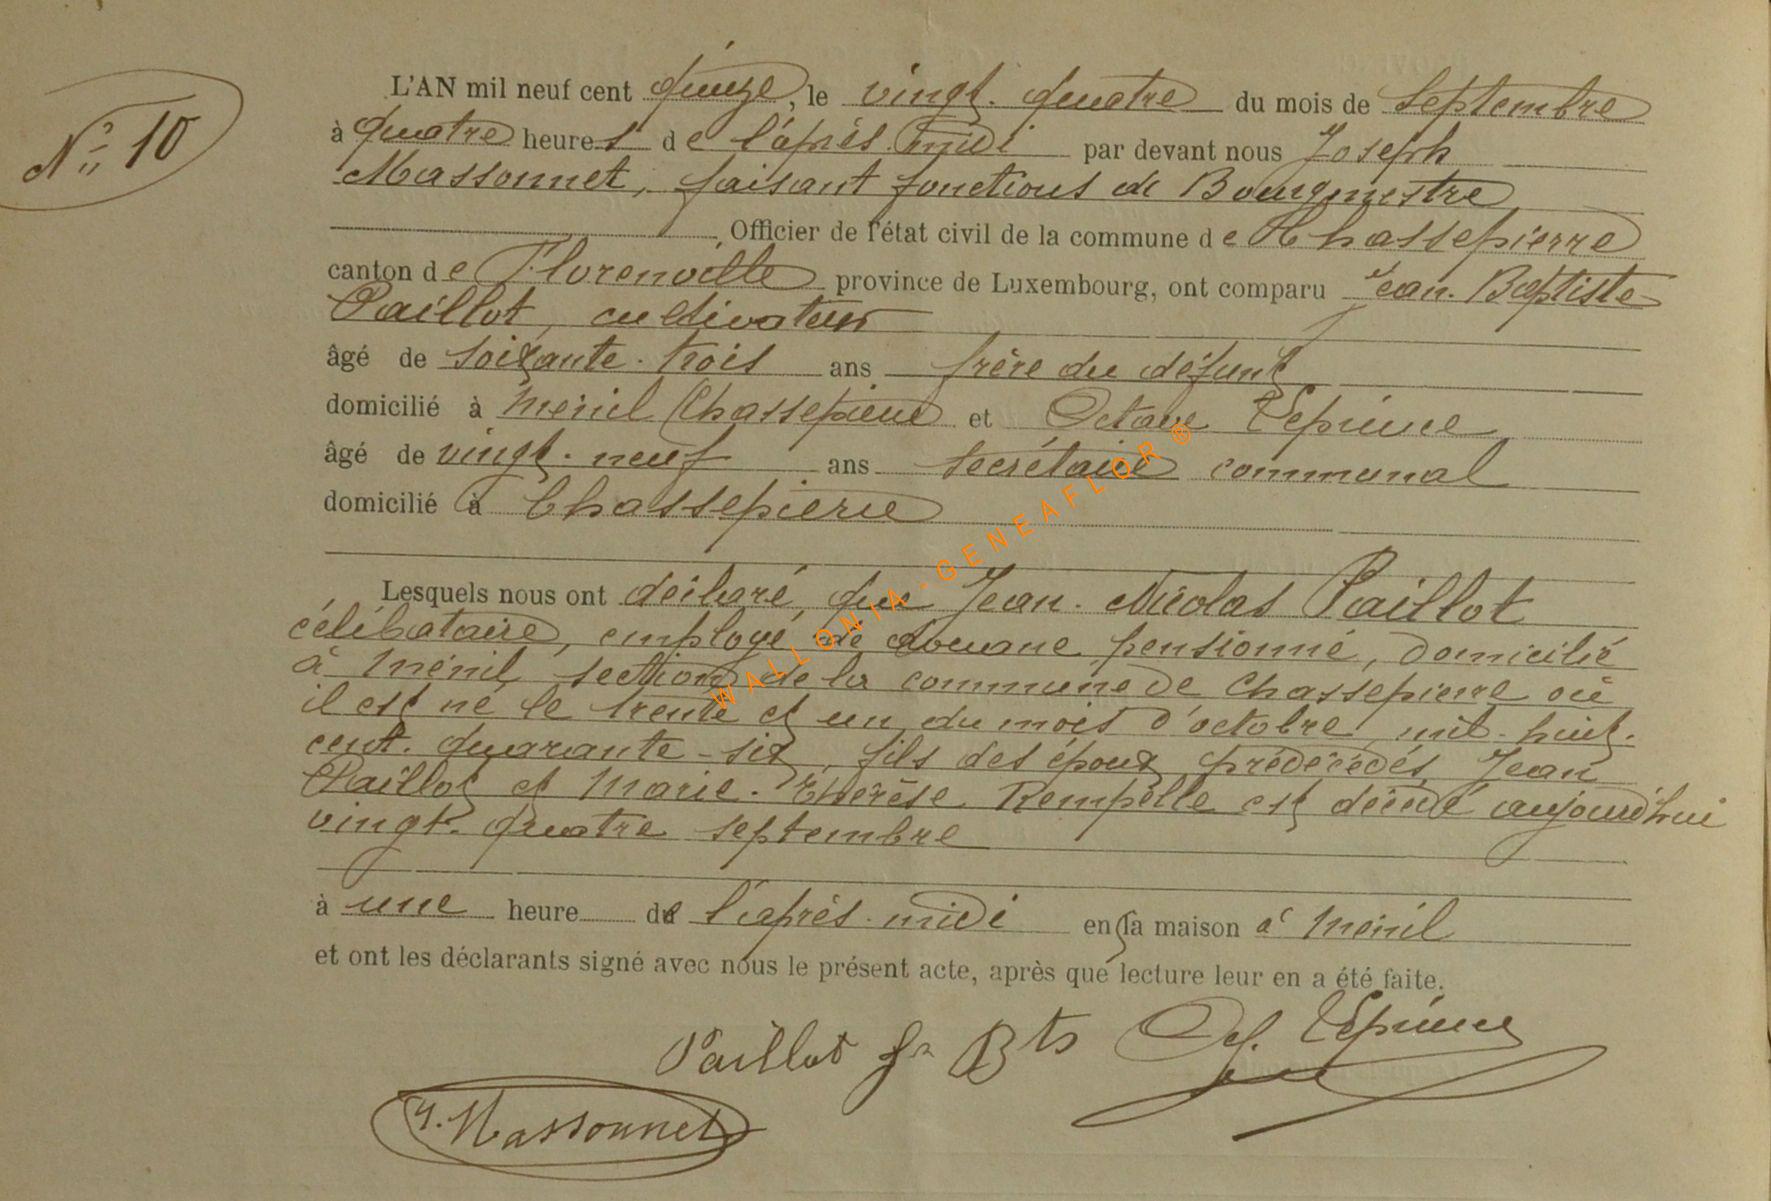 N° 10
L'AN mil neuf cent quinze, le vingt-quatre du mois de Septembre
à quatre heures de l'après-midi par devant nous Joseph
Massonnet, faisant fonctions de Bourgmestre
, Officier de l'état civil de la commune de Chassepierre
canton de Florenville province de Luxembourg, ont comparu Jean-Baptiste
Paillot, cultivateur
âgé de soixante-trois ans frère du défunt
domicilié à Ménil Chassepierre et Octave Lepruice
âgé de vingt-neuf ans secrétaire communal
domicilié à Chassepierre
Lesquels nous ont déclaré que Jean-Nicolas Paillot
célibataire, employé de douane pensionné, domicilié
à Ménil section de la commune de Chassepierre où
il est né le trente et un du mois d'octobre mil-huit-
cent-quarante-six, fils des époux prédécédés, Jean
Paillot et Marie-Thérèse Rempelle est décédé aujourd'hui
vingt-quatre septembre
à une heure de l'après-midi en sa maison à Ménil
et ont les déclarants signé avec nous le présent acte, après que lecture leur en a été faite.
Paillot Jn Bte
J. Massonnet
WALLONIA-GENEAFLOR ®